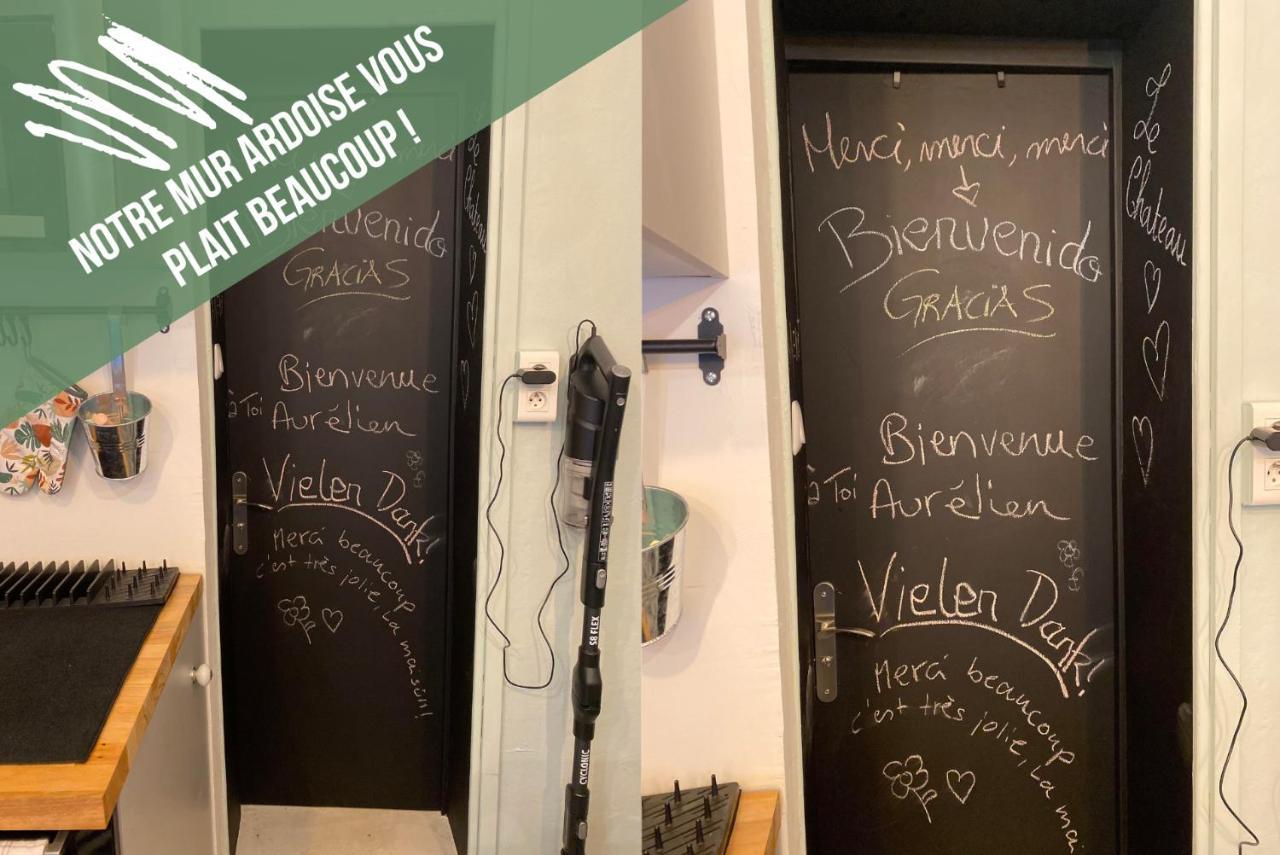 NOTRE MUR ARDOISE VOUS
PLAIT BEAUCOUP !
Bienvenido
GRACIAS
Bienvenue
à Toi Aurélien
Vielen Dank!
Merci beaucoup
c'est très jolie, La maison!
Le
Chateau
S8 FLEX
CYCLONIC
Merci, merci, merci
Bienvenido
GRACIAS
Bienvenue
à Toi Aurélien
Vielen Dank!
Merci beaucoup
c'est très jolie, La mai
Le
Chateau